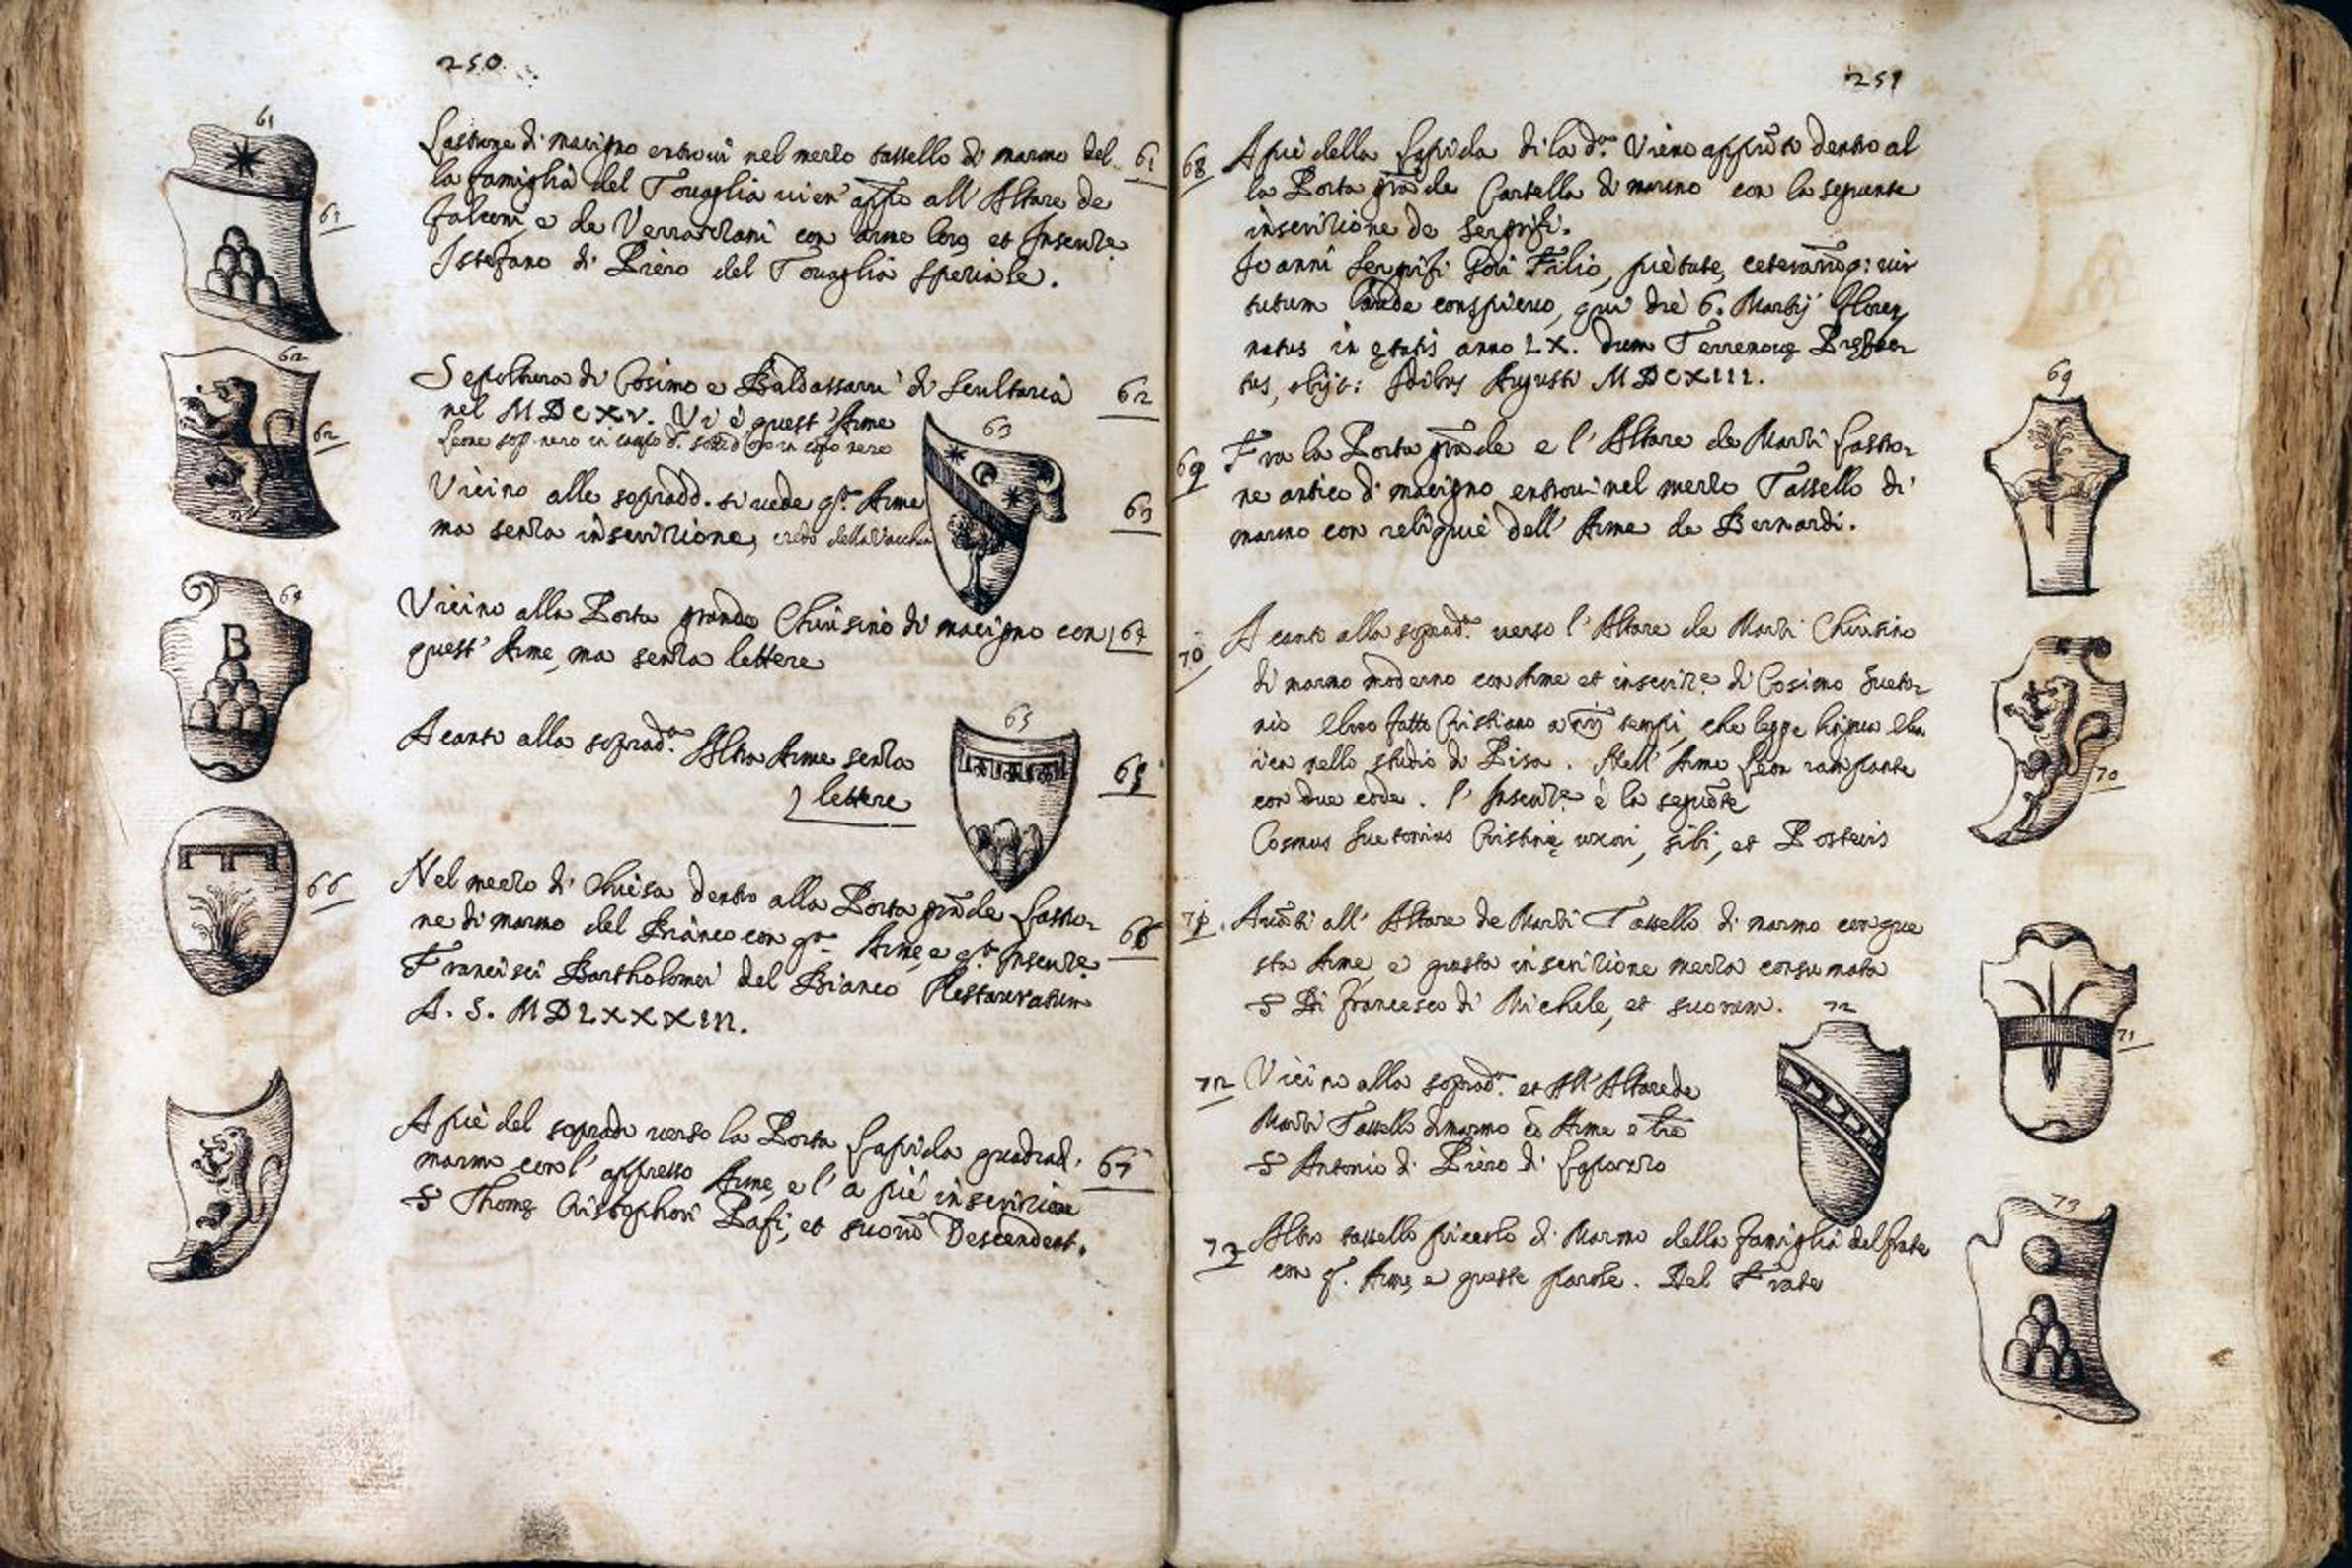 250
61
Lastrone di macigno entrovi nel mezzo tassello di marmo del 61
la famiglia del Tovaglia vien' app.o all' Altare de
Falconi, e de Verrazzani con arme loro, et Inscriz.e
Istefano di Piero del Tovaglia speziale.
61
62
Sepoltura di Cosimo e Baldassarri di Scultaria 62
nel MDCXV. Vi è quest' Arme
Leone sop. nero in campo
62
63
Vicino alle sopradd. si vede q.ta Arme 63
ma senza inscrizione, credo della Vacchia
64
Vicino alla Porta grande Chiusino di macigno con 64
quest' Arme, ma senza lettere
65
Acanto alla soprad.a Altra Arme senza 65
lettere
66
Nel mezzo di Chiesa dentro alla Porta grãde Lastro-
ne di marmo del Bianco con q.ta Arme, e q.ta Inscriz.e 66
Francisci Bartholomei del Bianco Restauratum
A. S. MDLXXXIII.
A piè del soprado verso la Porta Lapida quadrad. 67
marmo con l' appresso Arme, e l' a piè inscrizione
S Thomę Cristophori Pafi, et suorũ Descendent.
251
68 A piè della Lapida di la d.a Vieno appũto dentro al
la Porta grãde Cartella di marmo con la seguente
inscrizione de Serprifi.
Joanni Serprifi Gori Filio, pietate, ceterarũq: vir
tutum laude conspicuo, qui die 6. Martij Floren
natus in ętatis anno LX. dum Terrenovę Pręfuer
tus, obijt: Idibus Augusti MDCXIII.
69
69 Fra la Porta grãde e l' Altare de Marzi Lastro-
ne antico di macigno entrovi nel mezzo Tassello di
marmo con reliquie dell' Arme de Bernardi.
70 Acanto alla soprad.a verso l' Altare de Marzi Chiusino
di marmo moderno con Arme et inscriz.e di Cosimo Sueto-
nio Ebreo fatto Cristiano a tempi, che legge lingua Eba
ica nello studio di Pisa. Nell' Arme Leon rampante
con due code. l' Inscriz.e è la seguẽte
Cosmus Suetonius Cristinę uxori, sibi, et Posteris
70
71. Avãti all' Altare de Marzi Tassello di marmo con que
sta Arme, e questa inscrizione mezza consumata
S Di Francesco di Michele, et suorum.
71
72
72 Vicino alla soprad.a et All' Altare de
Marzi Tassello di marmo cõ Arme e lrẽ
S Antonio di Piero di Laparro
73
73 Altro tassello piccolo di Marmo della famiglia del frate
con q. Arme, e queste parole. Del Frate